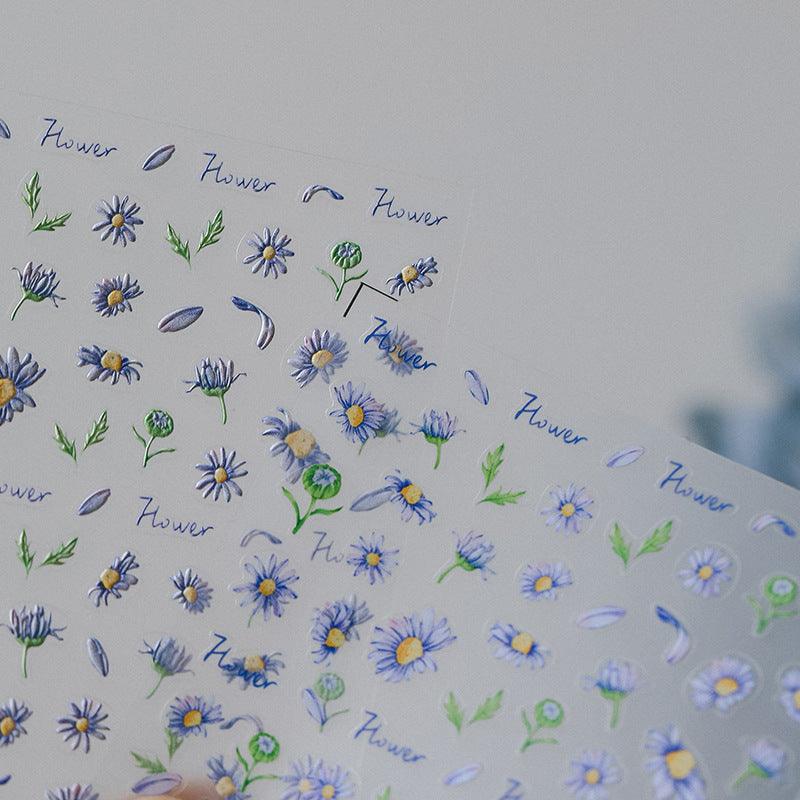 Flower
Flower
Flower
Flower
Flower
Flower
Flower
Flower
Flower